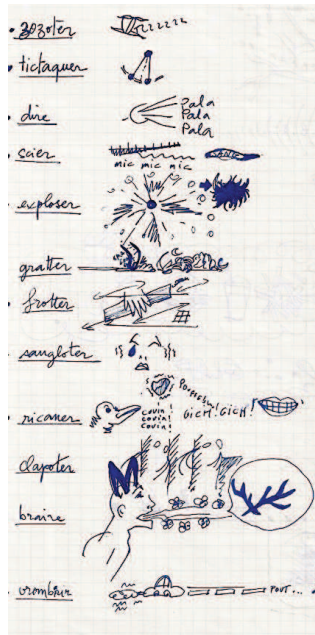 zozoter
zzzzzz
tictaquer
dire
Pala
Pala
Pala
scier
mic mic mic
exploser
gratter
frotter
sangloter
ricaner
couin
couin!
couin!
GICH! GICH!
clapoter
braire
vrombir
POUT...